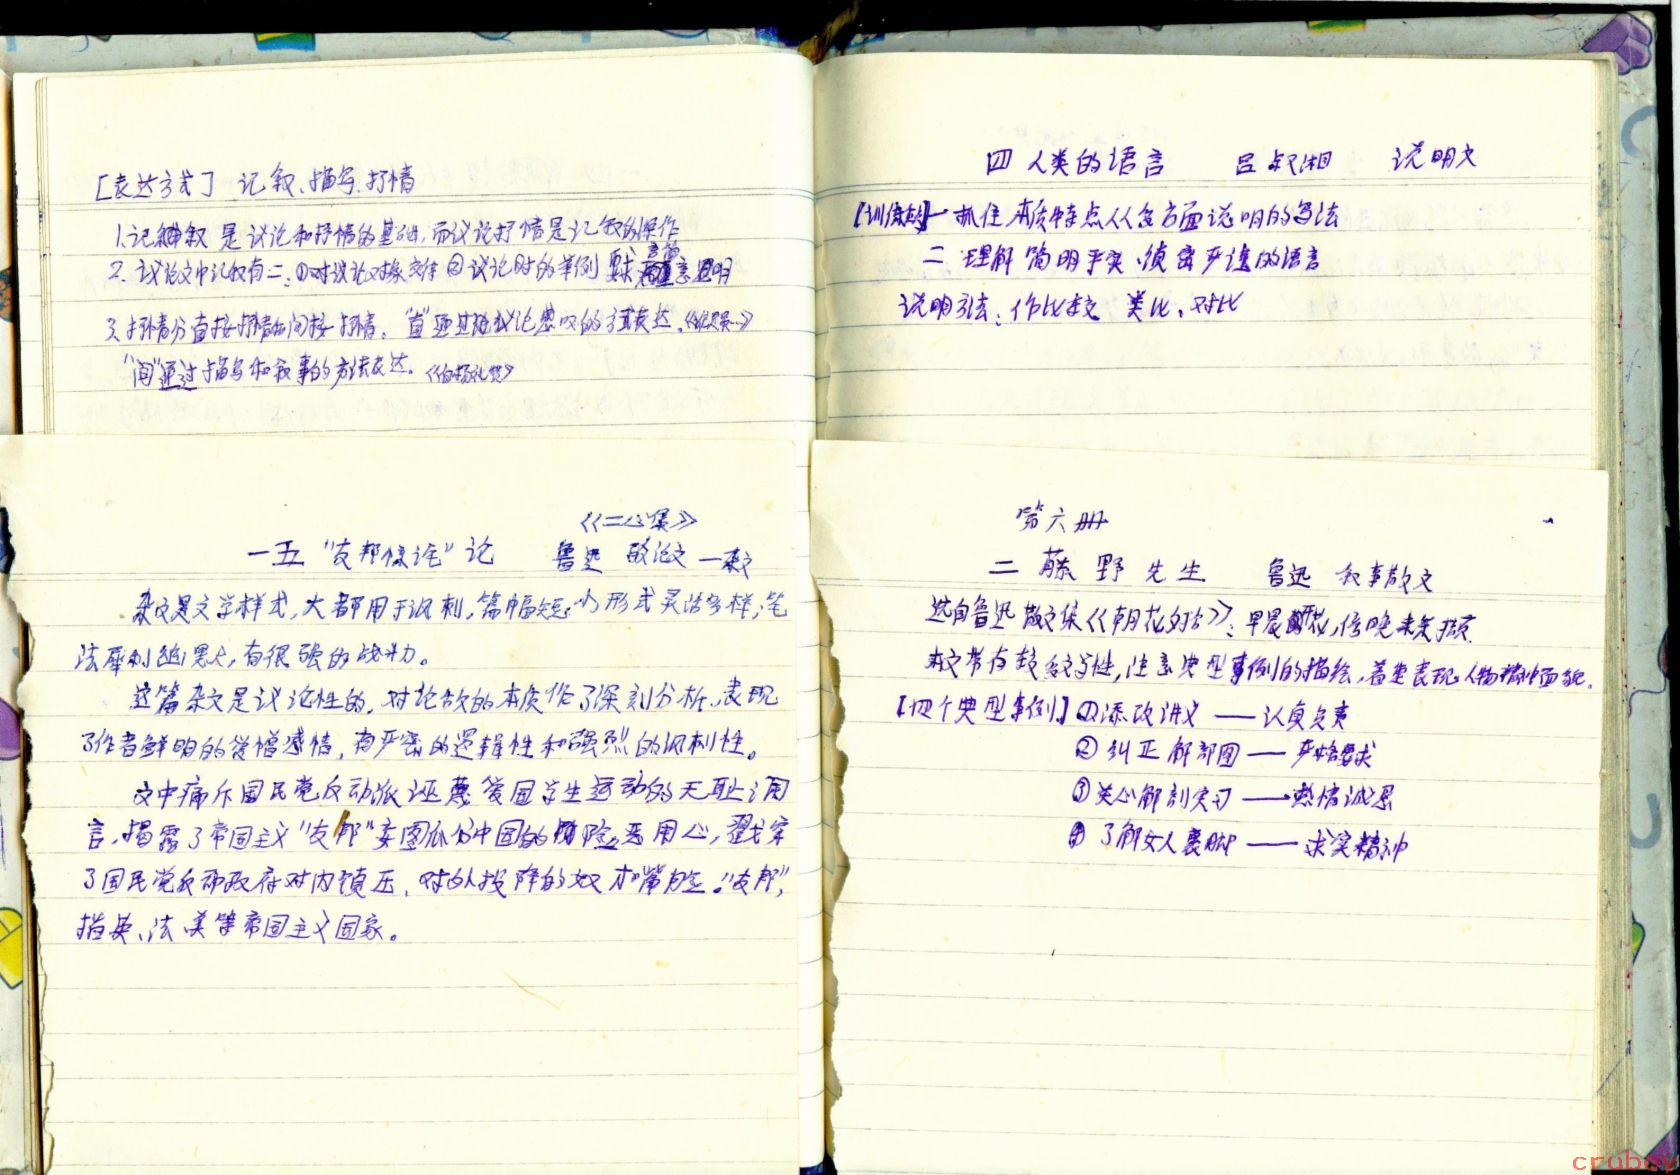 [表达方式] 记叙、描写、抒情
1.记叙 是议论和抒情的基础,而议论抒情是记叙的操作
2. 议论文中记叙有二:①对议论对象交待 ②议论时的举例 要求言简意思明
3.抒情分直接抒情和间接抒情。"直"通过议论感叹的方式表达。
"间"通过描写和叙事的方法表达。《白杨礼赞》
《二心集》
一五 "友邦惊诧"论 鲁迅 政论文—杂文
杂文是文学样式,大都用于讽刺,篇幅短小形式灵活多样,笔
法犀利幽默,有很强的战斗力。
这篇杂文是议论性的,对论敌的本质作了深刻分析,表现
了作者鲜明的爱憎感情,有严密的逻辑性和强烈的讽刺性。
文中痛斥国民党反动派诬蔑爱国学生运动的无耻谰
言,揭露了帝国主义"友邦"妄图瓜分中国的险恶用心,戳穿
了国民党反动政府对内镇压、对外投降的奴才嘴脸。"友邦",
指英、法、美等帝国主义国家。
四 人类的语言 吕叔湘 说明文
一 抓住本质特点从多方面说明的写法
二 理解简明平实、缜密严谨的语言
说明方法:作比较 类比、对比
第六册
二 藤野先生 鲁迅 叙事散文
选自鲁迅散文集《朝花夕拾》:早晨开花,傍晚来采撷.
本文带有较多文学性,注意典型事例的描绘,着重表现人物精神面貌.
【四个典型事例】①添改讲义 —— 认真负责
②纠正解部图 —— 严格要求
③关心解剖实习 —— 热情诚恳
④了解女人裹脚 —— 求实精神
cruboy